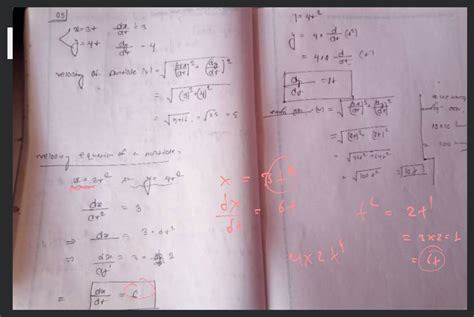 05
x = 3t dx/dt = 3
y = 4t dy/dt = 4
velocity of particle (v) = √[dx/dt]² + [dy/dt]²
= √(3)² + (4)²
= √9+16 = √25 = 5
velocity equation of a particle
x = 3t² y = 4t²
dx/dt² = 3
⇒ dx = 3·dt²
⇒ dx/dt = 3 × 2
= dx/dt = 6
y = 4t²
y = 4 × d/dt (t²)
= 4 × d/dt (t²)
dy/dt = 8t
(v) = √[dx/dt]² + [dy/dt]²
= √(6t)² + (8t)²
= √36t² + 64t²
= √100t² = 10t
x = 3t²
dx/dt = 6t
4×2t¹
t² = 2t¹
= 3×2×t
= 6t